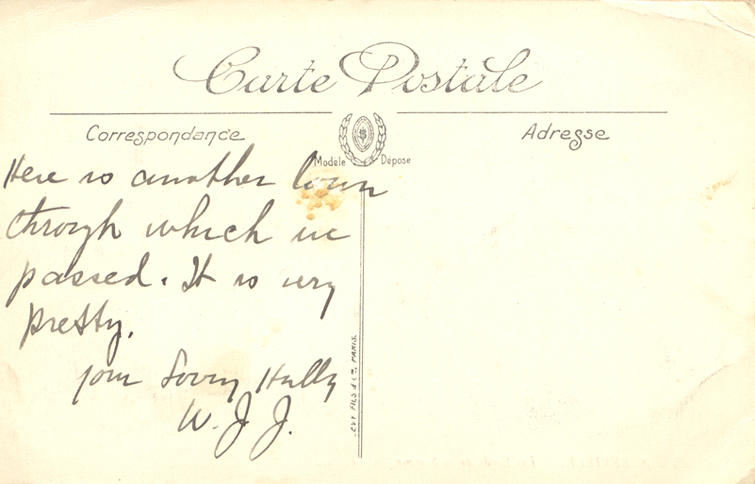 Carte Postale
Correspondance
Adresse
Modèle Déposé
Here is another town
through which we
passed. It is very
pretty.
your Loving Hubby
W. J. J.
LEVY FILS & Cie, PARIS.